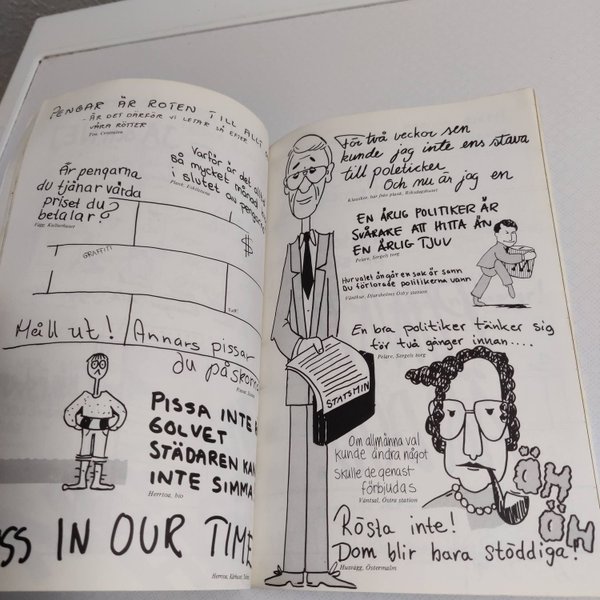 PENGAR ÄR ROTEN TILL ALLT
- ÄR DET DÄRFÖR VI LETAR SÅ EFTER
VÅRA RÖTTER
Toa. Centralen
Varför är det alltid
så mycket månad
i slutet av pengarna
Plank, Eskilstuna
Är pengarna
du tjänar värda
priset du
betalar?
Vägg. Kulturhuset
$
GRAFFITI
Mäll ut!
Annars pissar
du på skorna
PISSA INTE
GOLVET
STÄDAREN KAN
INTE SIMMA
Herrtoa, bio
SS IN OUR TIME
För två veckor sen
kunde jag inte ens stava
till poleticker
Och nu är jag en
Klassiker, här från plank, Riksdagshuset
EN ÄRLIG POLITIKER ÄR
SVÅRARE ATT HITTA ÄN
EN ÄRLIG TJUV
Pelare, Sergels torg
Hur valet än går en sak är sann
Du förlorade politikerna vann
Väntkur, Djursholms Östry station
En bra politiker tänker sig
för två gånger innan....
Pelare, Sergels torg
STATSMIN
Om allmänna val
kunde ändra något
skulle de genast
förbjudas
Väntsal, Östra station
ÖH
ÖH
Rösta inte!
Dom blir bara stöddiga!
Husvägg, Östermalm